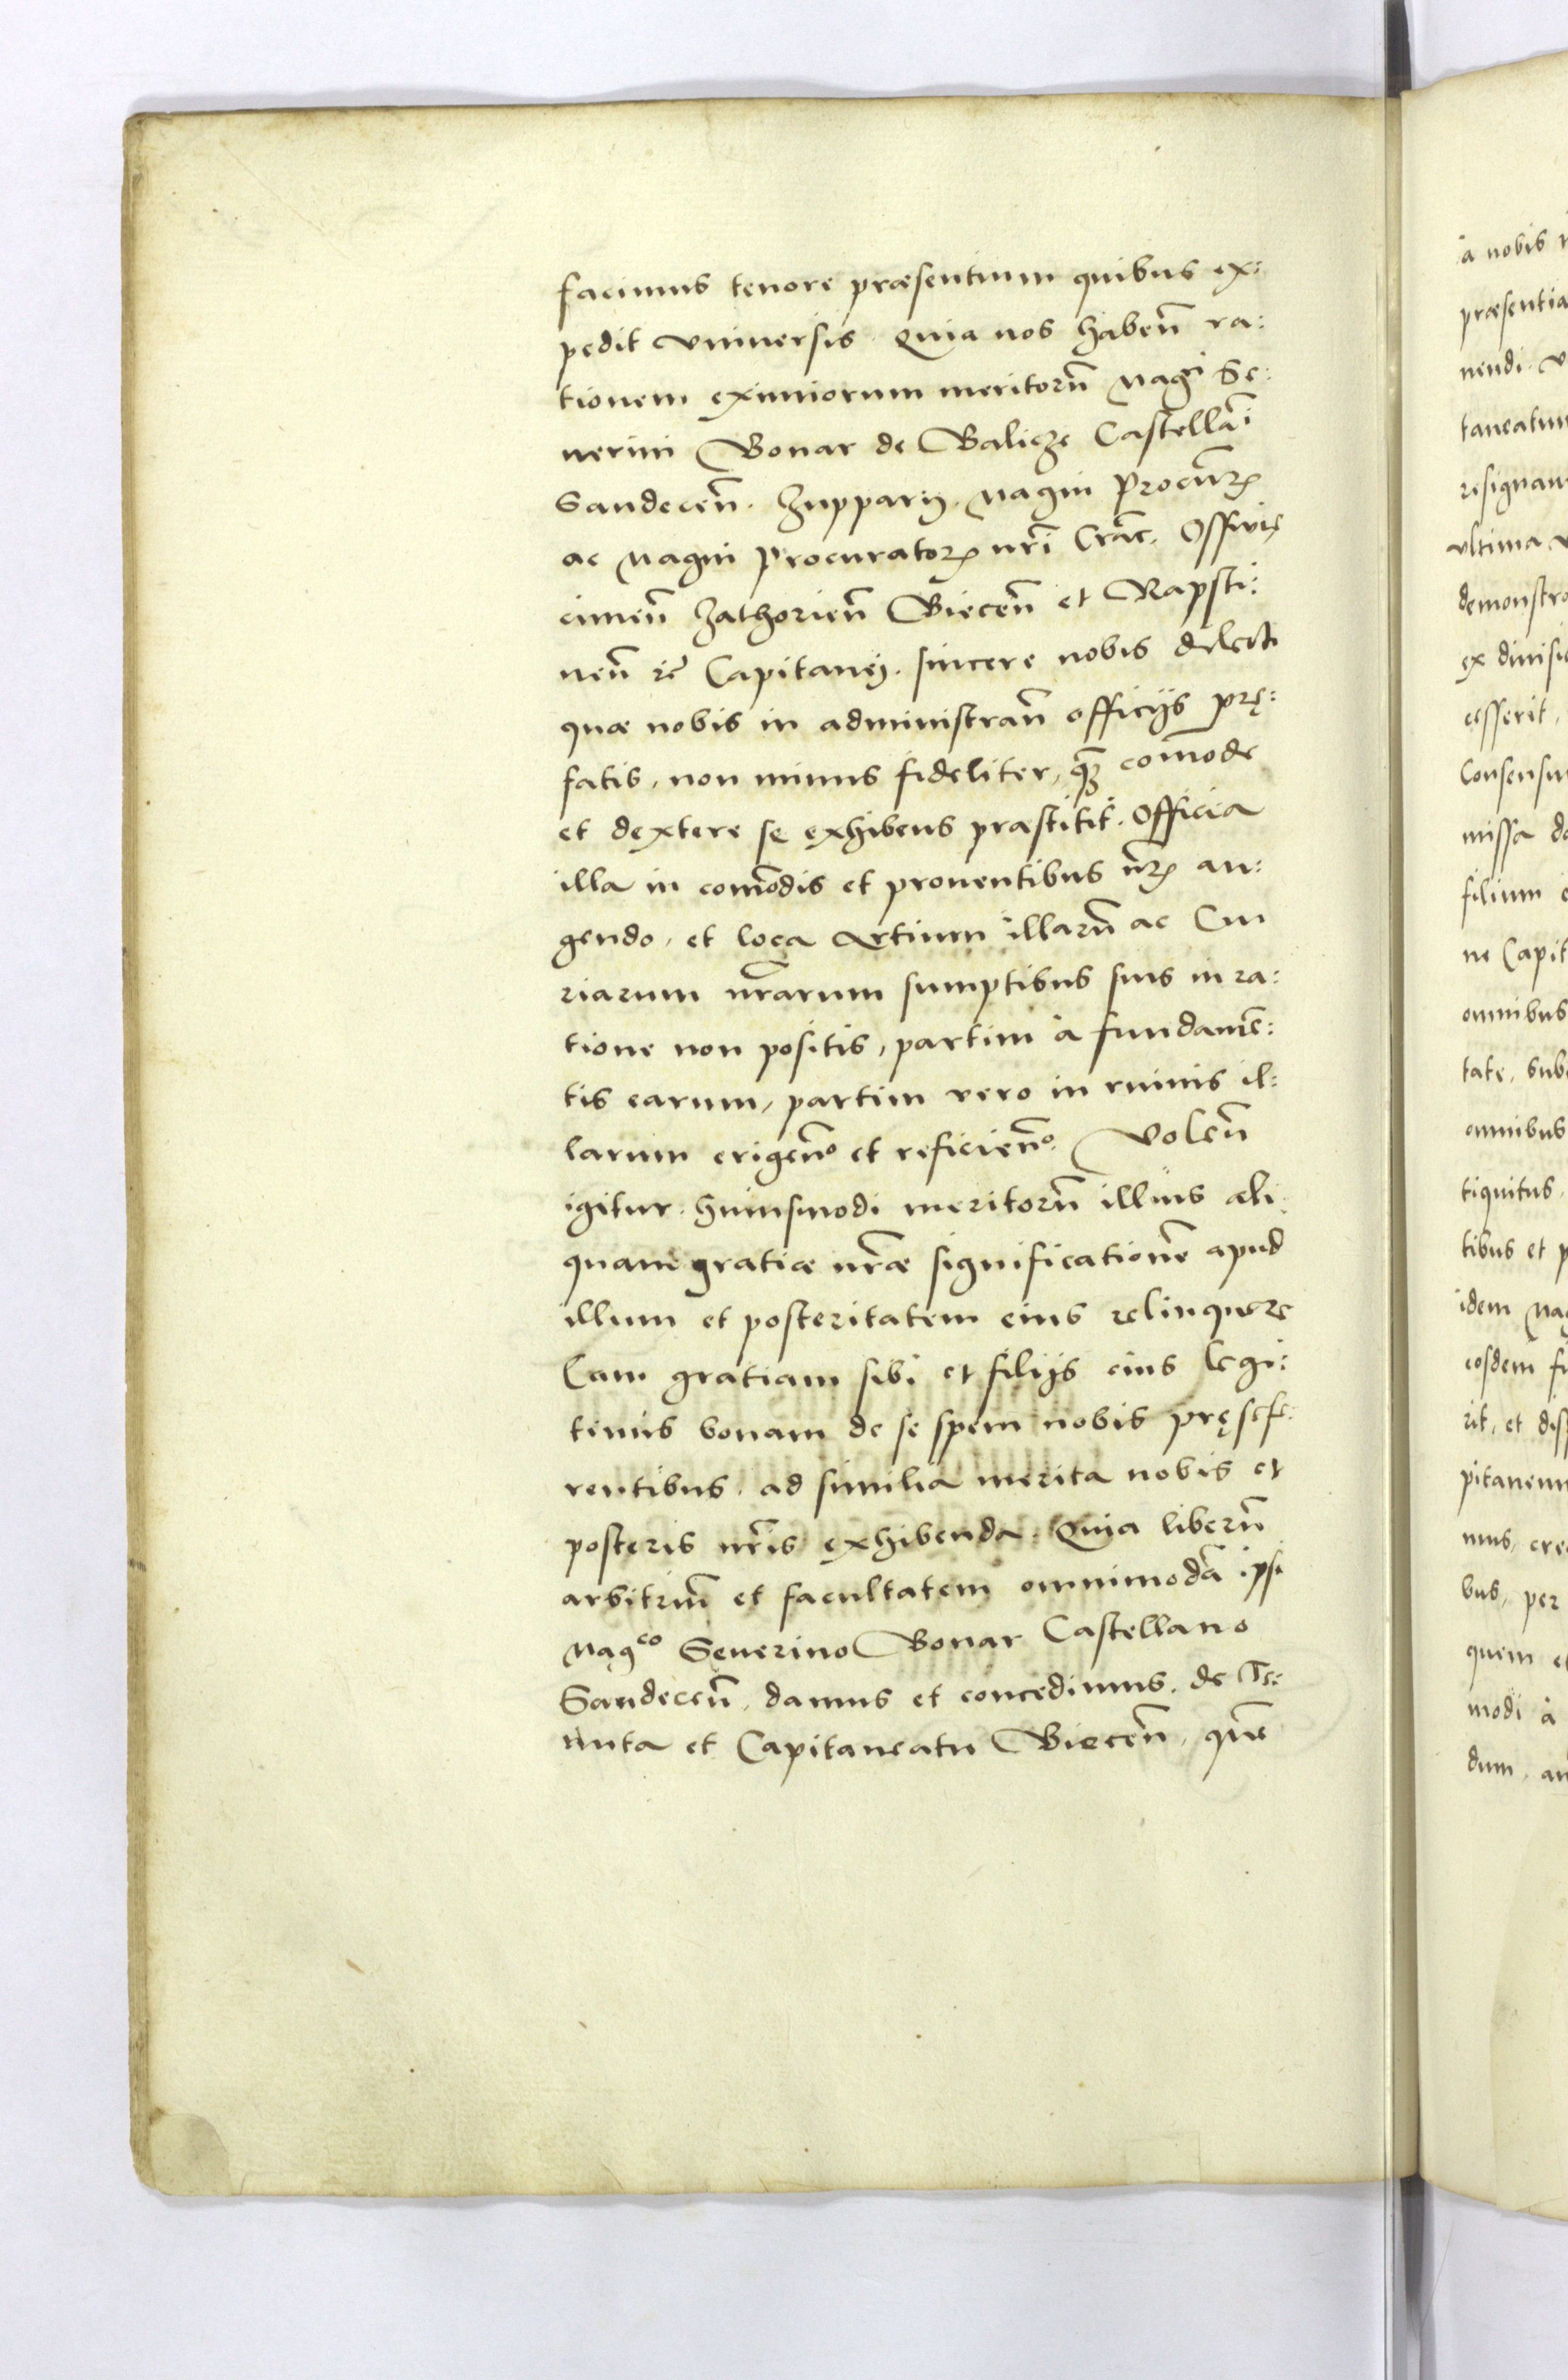 facimus tenore præsentium quibus ex:
pedit vniuersis. Quia nos habeñ ra:
tionem eximiorum meritorũ Magci Se:
uerini Bonar de Balicze Castellãi
Sandeceñ. Zupparij. Magni Procur̃
ac Magni Procurator̃ nr̃i Crac. Osswię
cimeñ Zathorieñ Bieceñ et Rapsti:
neñ &c̃ Capitanei. sincere nobis dilecti
quæ nobis in administrañ officijs prę:
fatis, non minus fideliter, quã com̃ode
et dextere se exhibens præstitit. Officia
illa in com̃odis et prouentibus nr̃is au:
gendo, et loca Artium illarũ ac Cu
riarum nr̃arum sumptibus suis in ra:
tione non positis, partim à fundamẽ:
tis earum, partim vero in ruinis il:
larum erigeñdo et reficieñdo. Voleñ
igitur. huiusmodi meritorũ illius ali.
quam gratiæ nr̃æ significationẽ apud
illum et posteritatem eius relinquere
Eam gratiam sibi et filijs eius legi:
timis bonam de se spem nobis pręsefe:
rentibus. ad similia merita nobis et
posteris nr̃is exhibenda. Quia liberũ
arbitriũ et facultatem omnimodã ipsi
Mag^co Seuerino Bonar Castellano
Sandeceñ. damus et concedimus. de Te:
nuta et Capitaneatu Bieceñ. quẽ
à nobis
præsentia
nendi.
taneatum
resignan
vltima
demonstra
ex diuisi
cesserit,
Consensu
missa
filium
ne Capit
omnibus
tate, sub
omnibus
tiquitus,
tibus et p
idem Mag
eosdem fi
rit, et disp
pitaneum
mus,
bus, per
quem et
modi à
dum, an